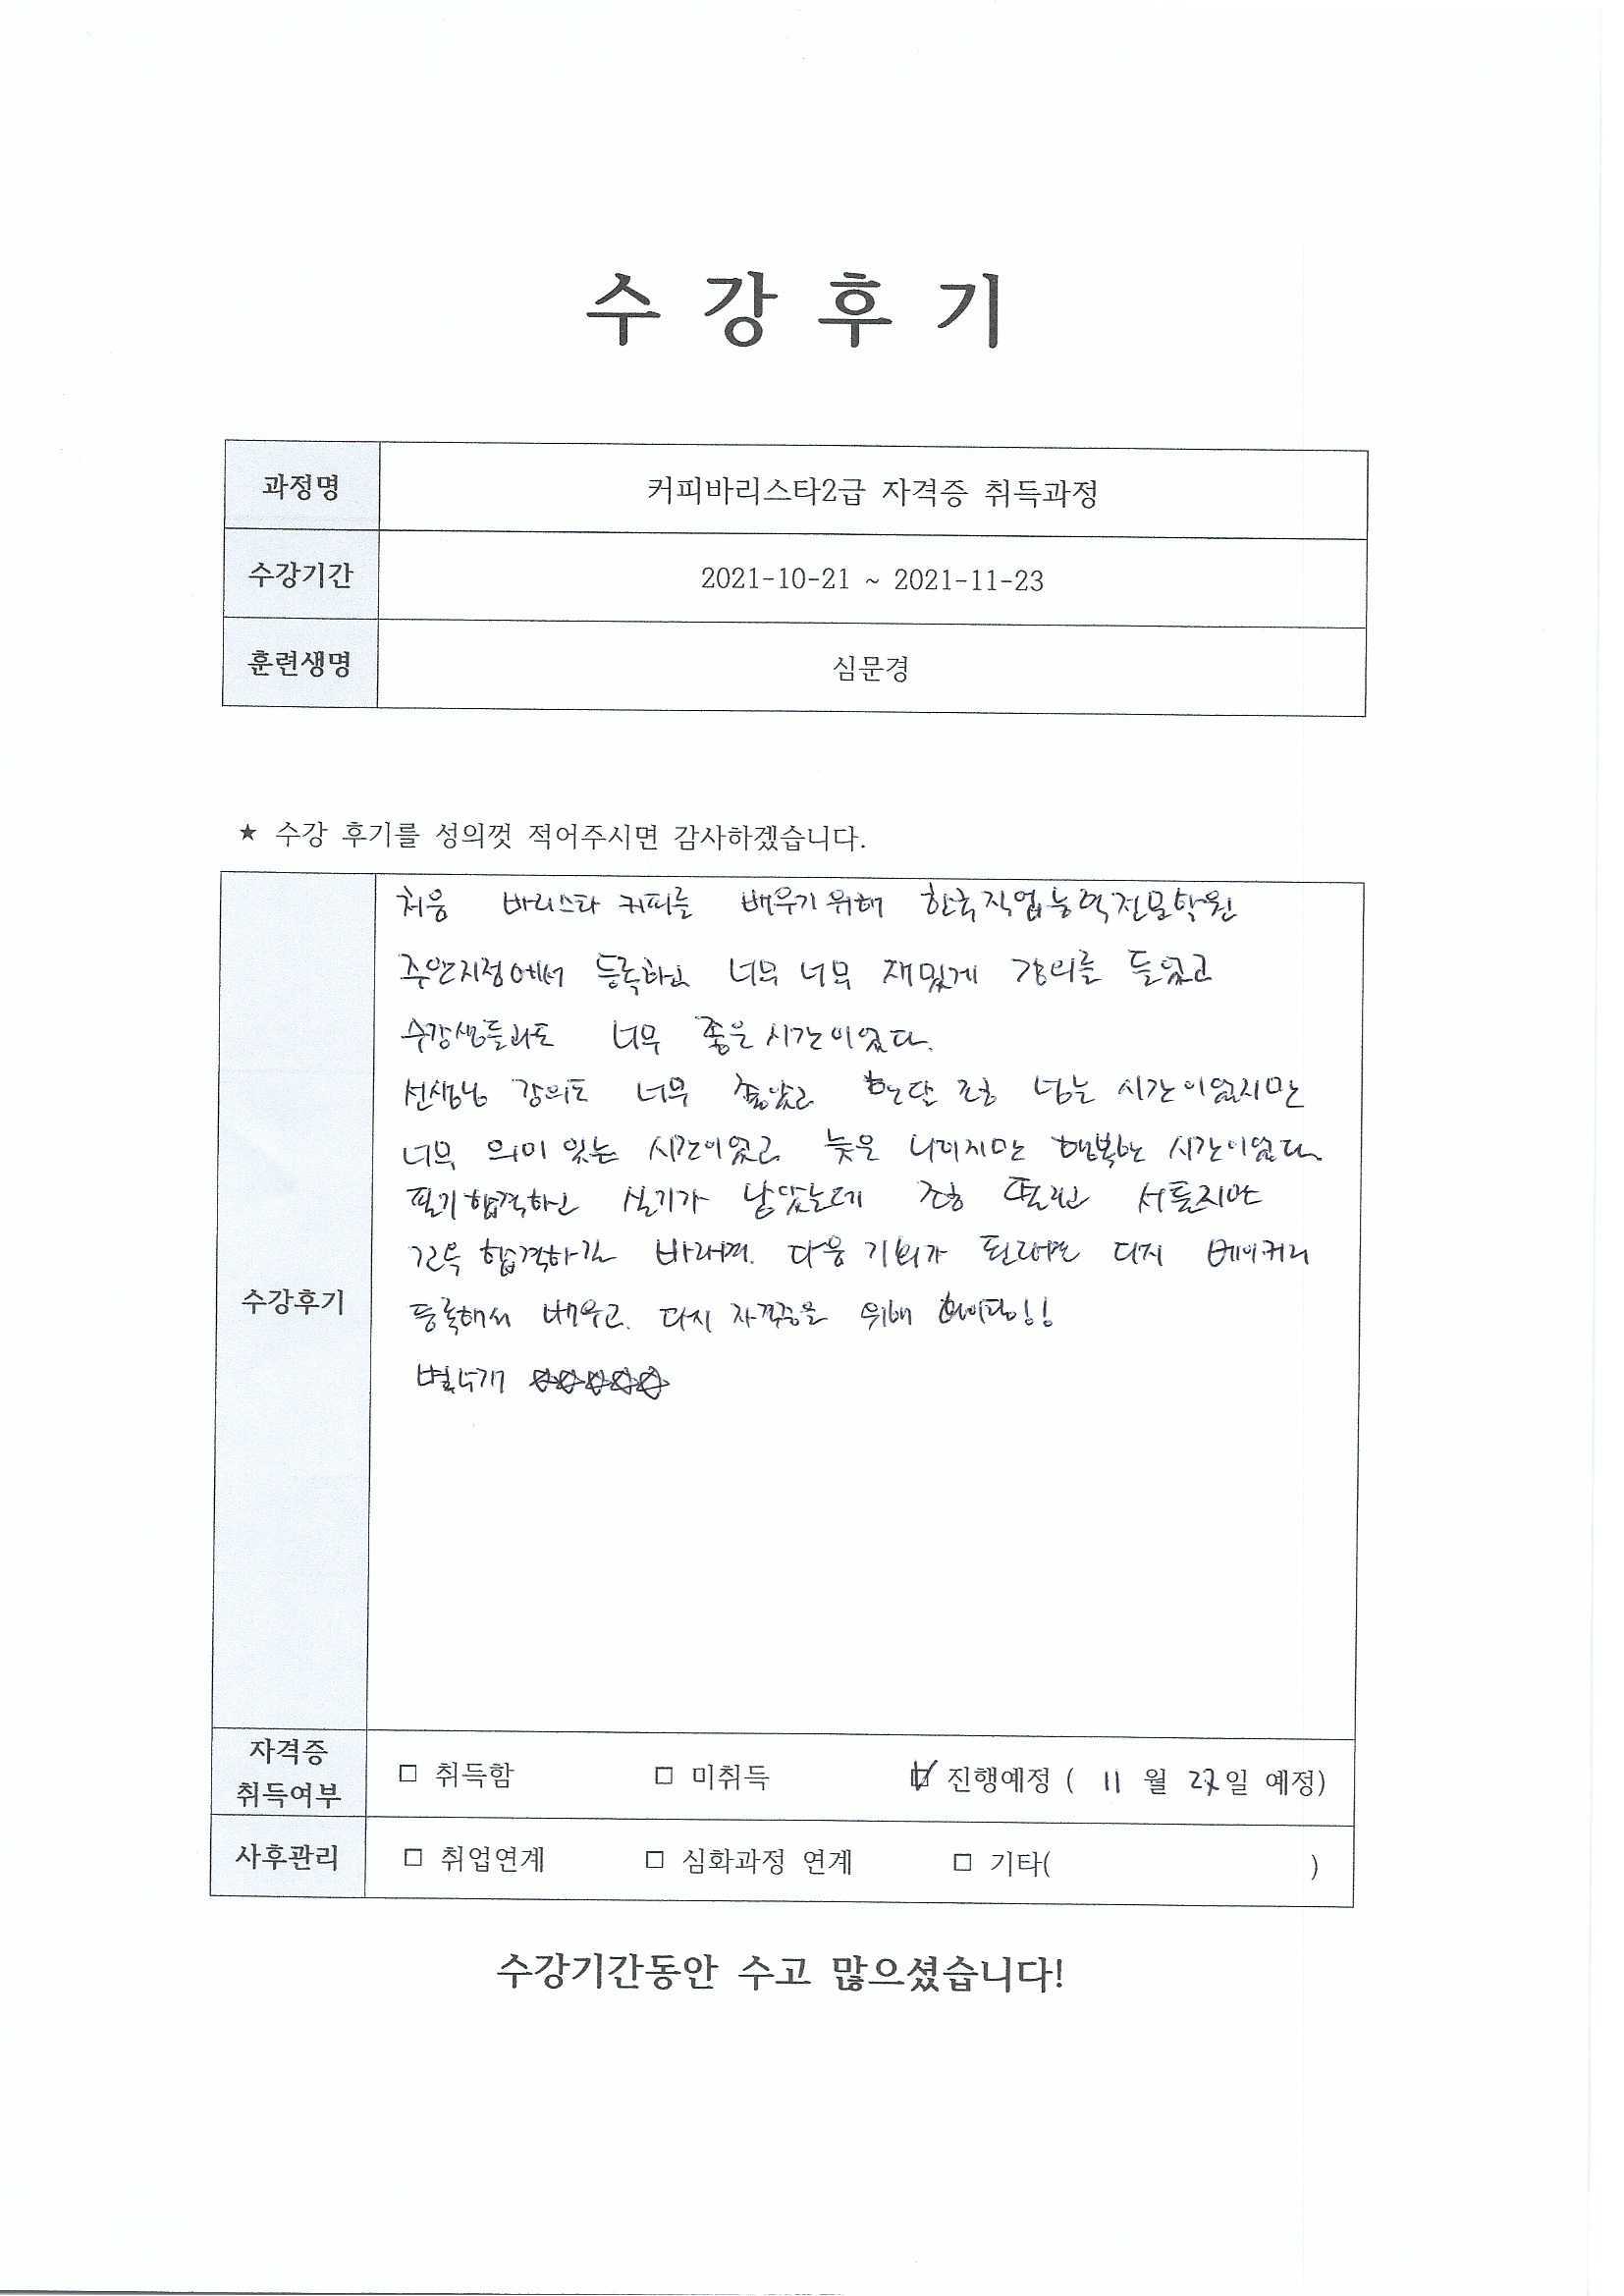 수 강 후 기
과정명 커피바리스타2급 자격증 취득과정
수강기간 2021-10-21 ~ 2021-11-23
훈련생명 심문경
★ 수강 후기를 성의껏 적어주시면 감사하겠습니다.
수강후기
처음 바리스타 커피를 배우기 위해 한국직업능력전문학원
주안지점에서 등록하고 너무 너무 재밌게 강의를 들었고
수강생들과도 너무 좋은 시간이었다.
선생님 강의도 너무 좋았고 한달 조금 넘는 시간이었지만
너무 의미 있는 시간이었고 늦은 나이지만 행복한 시간이었다
필기합격하고 실기가 남았는데 조금 떨리고 서툴지만
꼭 합격하길 바라며. 다음 기회가 된다면 다시 베이커리
등록해서 배우고. 다시 자격증을 위해 화이팅!!
별5개 ☆☆☆☆☆
자격증
취득여부
□ 취득함 □ 미취득 ☑ 진행예정 ( 11 월 27일 예정)
사후관리 □ 취업연계 □ 심화과정 연계 □ 기타( )
수강기간동안 수고 많으셨습니다!